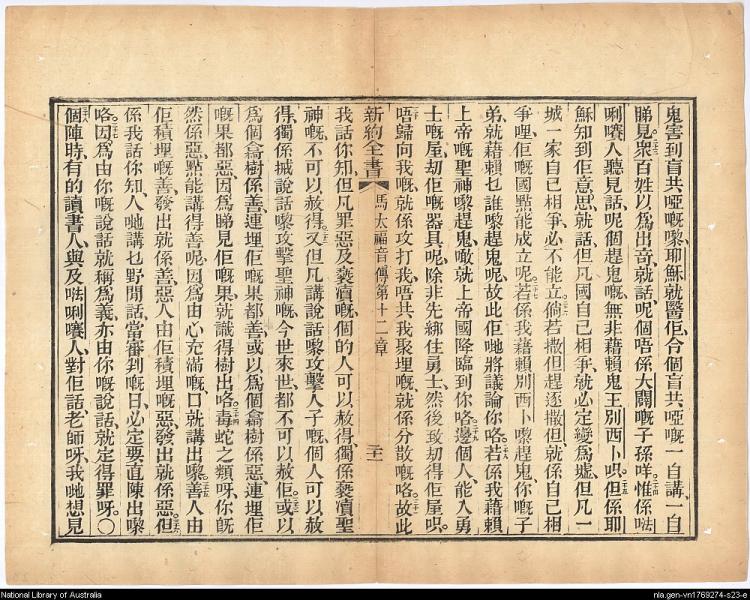 鬼害到盲共啞嘅嚟、耶穌就醫佢、令個盲共啞嘅一自講、一自
睇見、衆百姓以爲出奇、就話、呢個唔係大闢嘅子孫咩、惟係𠵽
唎㘔人聽見話、呢個趕鬼嘅、無非藉賴鬼王別西卜吠、但係耶
穌知到佢意思、就話、但凡國自己相爭、就必定變爲墟、但凡一
城一家自己相爭、必不能立、倘若撒但趕逐撒但、就係自己相
爭哩、佢嘅國點能成立呢、若係我藉賴別西卜嚟趕鬼、你嘅子
弟、就藉賴乜誰嚟趕鬼呢、故此佢哋將議論你咯、若係我藉賴
上帝嘅聖神嚟趕鬼、噉就上帝國降臨到你咯、邊個人、能入勇
士嘅屋、刧佢嘅器具呢、除非先綁住勇士、然後致刧得佢屋吠、
唔歸向我嘅、就係攻打我、唔共我聚埋嘅、就係分散嘅咯、故此
新約全書 馬太福音傳第十二章 二十二
我話你知、但凡罪惡及褻瀆嘅個的人可以赦得、獨係褻瀆聖
神嘅、不可以赦得、又但凡講說話嚟攻擊人子嘅、個人可以赦
得、獨係㨃說話嚟攻擊聖神嘅、今世來世都不可以赦佢、或以
爲個樖樹係善、連埋佢嘅果都善、或以爲個樖樹係惡、連埋佢
嘅果都惡、因爲睇見佢嘅果、就識得樹出咯、毒蛇之類呀、你旣
然係惡、點能講得善呢、因爲由心充滿嘅、口就講出嚟、善人由
佢積埋嘅善、發出就係善、惡人由佢積埋嘅惡、發出就係惡、但
係我話你知、人哋講乜野閒話、當審到嘅日、必定要直陳出嚟
咯、因爲由你嘅說話、就稱爲義、亦由你嘅說話、就定得罪呀、〇
個陣時有的讀書人、與及𠵽唎㘔人、對佢話、老師呀、我哋想見
National Library of Australia
nla.gen-vn1769274-s23-e